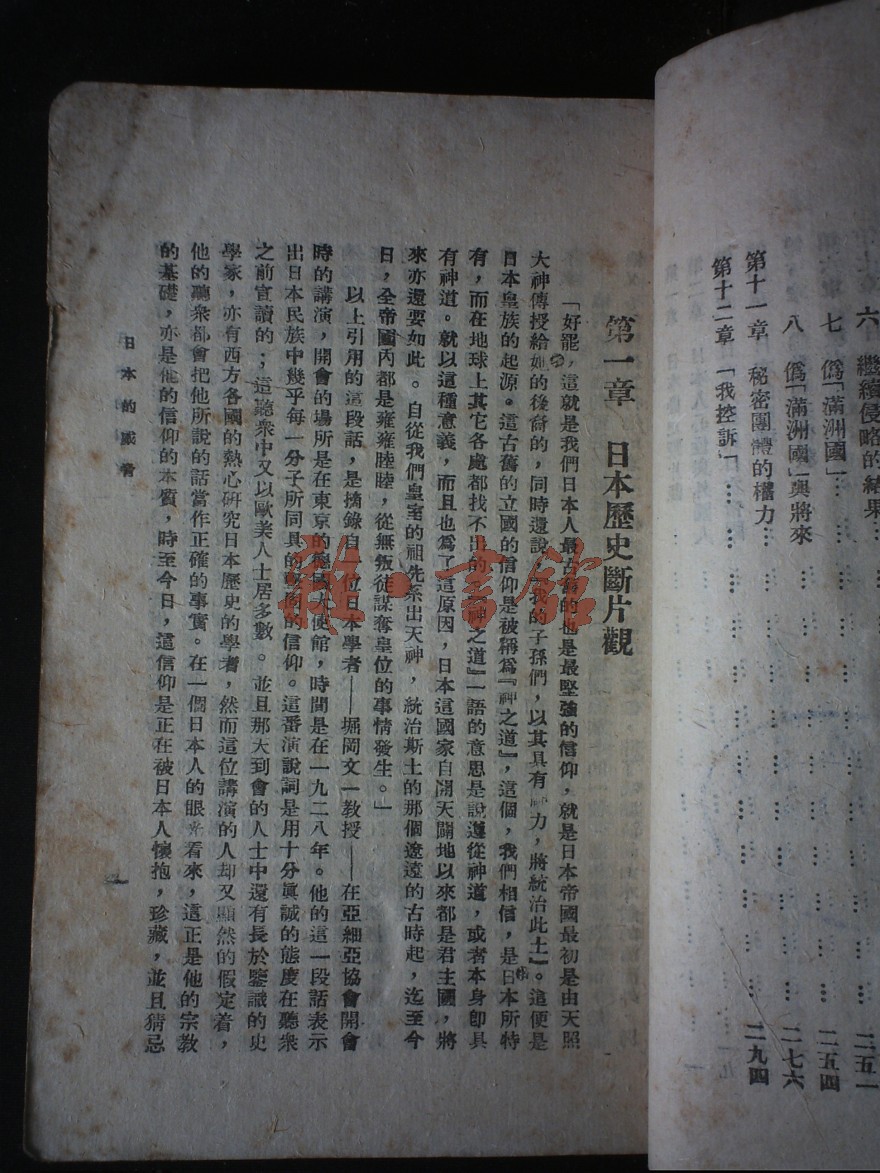 六　繼續侵略的結果…… 二五一
七　僞「滿洲國」…… 二五四
八　僞「滿洲國」與將來…… 二七六
第十一章　秘密團體的權力……
第十二章　「我控訴」…… 二九四
第一章　日本歷史斷片觀
「好罷，這就是我們日本人最古舊的也是最堅強的信仰，就是日本帝國最初是由天照
大神傳授給她的後裔的，同時還說『我的子孫們，以其具有神力，將統治此土』。這便是
日本皇族的起源。這古舊的立國的信仰是被稱爲『神之道』，這個，我們相信，是日本所特
有，而在地球上其它各處都找不出的。『神之道』一語的意思是說遵從神道，或者本身卽具
有神道。就以這種意義，而且也爲了這原因，日本這國家自開天闢地以來都是君主國，將
來亦還要如此。自從我們皇室的祖先系出天神，統治斯土的那個遼遠的古時起，迄至今
日，全帝國內都是雍雍睦睦，從無叛徒謀奪皇位的事情發生。」
以上引用的這段話，是摘錄自一位日本學者——堀岡文一教授——在亞細亞協會開會
時的講演，開會的場所是在東京的德國大使館，時間是在一九二八年。他的這一段話表示
出日本民族中幾乎每一分子所同具的的信仰。這番演說詞是用十分眞誠的態度在聽衆
之前宣讀的；這聽衆中又以歐美人士居多數。並且那天到會的人士中還有長於鑒識的史
學家，亦有西方各國的熱心研究日本歷史的學者，然而這位講演的人却又顯然的假定着，
他的聽衆都會把他所說的話當作正確的事實。在一個日本人的眼光看來，這正是他的宗教
的基礎，亦是他的信仰的本質，時至今日，這信仰是正在被日本人懷抱，珍藏，並且猜忌
日本的威脅
一
雅·書館